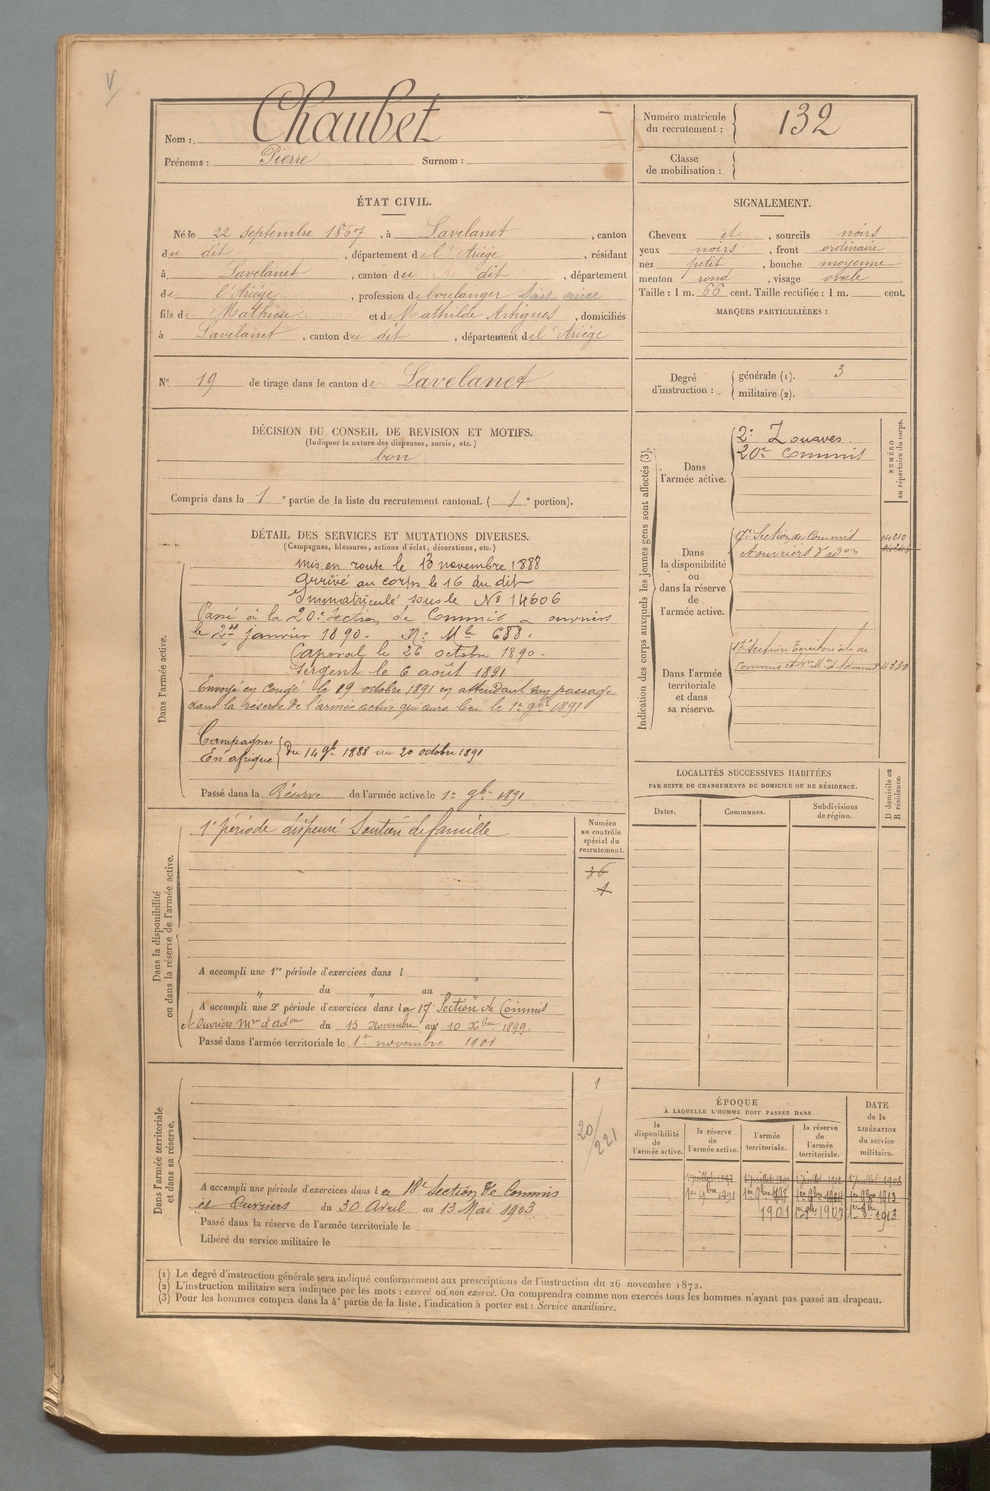 Nom : Chaubet
Prénoms : Pierre Surnom :
Numéro matricule du recrutement : 132
Classe de mobilisation :
ÉTAT CIVIL.
Né le 22 septembre 1867, à Lavelanet, canton
du dit, département de l'Ariège, résidant
à Lavelanet, canton du dit, département
de l'Ariège, profession de boulanger
fils de Mathieu et de Mathilde Artigues, domiciliés
à Lavelanet, canton du dit, département de l'Ariège
N° 19 de tirage dans le canton de Lavelanet
SIGNALEMENT.
Cheveux et, sourcils noirs
yeux noirs, front ordinaire
nez petit, bouche moyenne
menton rond, visage ovale
Taille : 1 m. 66 cent. Taille rectifiée : 1 m. cent.
MARQUES PARTICULIÈRES :
Degré d'instruction : générale (1). 3
militaire (2).
DÉCISION DU CONSEIL DE REVISION ET MOTIFS.
(Indiquer la nature des dispenses, sursis, etc.)
bon
Compris dans la 1e partie de la liste du recrutement cantonal. (1e portion).
DÉTAIL DES SERVICES ET MUTATIONS DIVERSES.
(Campagnes, blessures, actions d'éclat, décorations, etc.)
Dans l'armée active.
mis en route le 13 novembre 1888
Arrivé au corps le 16 du dit
Immatriculé sous le No 14606
Passé à la 20e section de Commis & ouvriers
le 2 janvier 1890. No Mle 688.
Caporal le 26 octobre 1890.
Sergent le 6 août 1891
Envoyé en congé le 29 octobre 1891 en attendant son passage
dans la réserve de l'armée active qui aura lieu le 1er 9bre 1891
Campagnes
En afrique
du 14 9bre 1888 au 20 octobre 1891
Passé dans la Réserve de l'armée active le 1er 9bre 1891
Indication des corps auxquels les jeunes gens sont affectés (3).
NUMÉRO au répertoire du corps.
Dans l'armée active.
2e Zouaves.
20e Commis
Dans la disponibilité ou dans la réserve de l'armée active.
17e Section de Commis
et ouvriers d'adon
Dans l'armée territoriale et dans sa réserve.
17e Section territoriale de
Dans la disponibilité ou dans la réserve de l'armée active.
1e période dispensé Soutien de famille
Numéro au contrôle spécial du recrutement.
36
A accompli une 1re période d'exercices dans l
" du au "
A accompli une 2e période d'exercices dans la 17e Section de Commis
et Ouvriers Mre d'adon du 13 Novembre au 10 Xbre 1899.
Passé dans l'armée territoriale le 1er novembre 1901
LOCALITÉS SUCCESSIVES HABITÉES
PAR SUITE DE CHANGEMENTS DE DOMICILE OU DE RÉSIDENCE.
Dates. Communes. Subdivisions de région. D domicile ou R résidence.
Dans l'armée territoriale et dans sa réserve.
1
20/221
A accompli une période d'exercices dans la 18e Section de Commis
et Ouvriers du 30 Avril au 13 Mai 1903
Passé dans la réserve de l'armée territoriale le
Libéré du service militaire le
ÉPOQUE
À LAQUELLE L'HOMME DOIT PASSER DANS
la disponibilité de l'armée active. la réserve de l'armée active. l'armée territoriale. la réserve de l'armée territoriale.
DATE de la LIBÉRATION du service militaire.
1er 9bre 1891
1901
(1) Le degré d'instruction générale sera indiqué conformément aux prescriptions de l'instruction du 26 novembre 1872.
(2) L'instruction militaire sera indiquée par les mots : exercé ou non exercé. On comprendra comme non exercés tous les hommes n'ayant pas passé au drapeau.
(3) Pour les hommes compris dans la 4e partie de la liste, l'indication à porter est : Service auxiliaire.